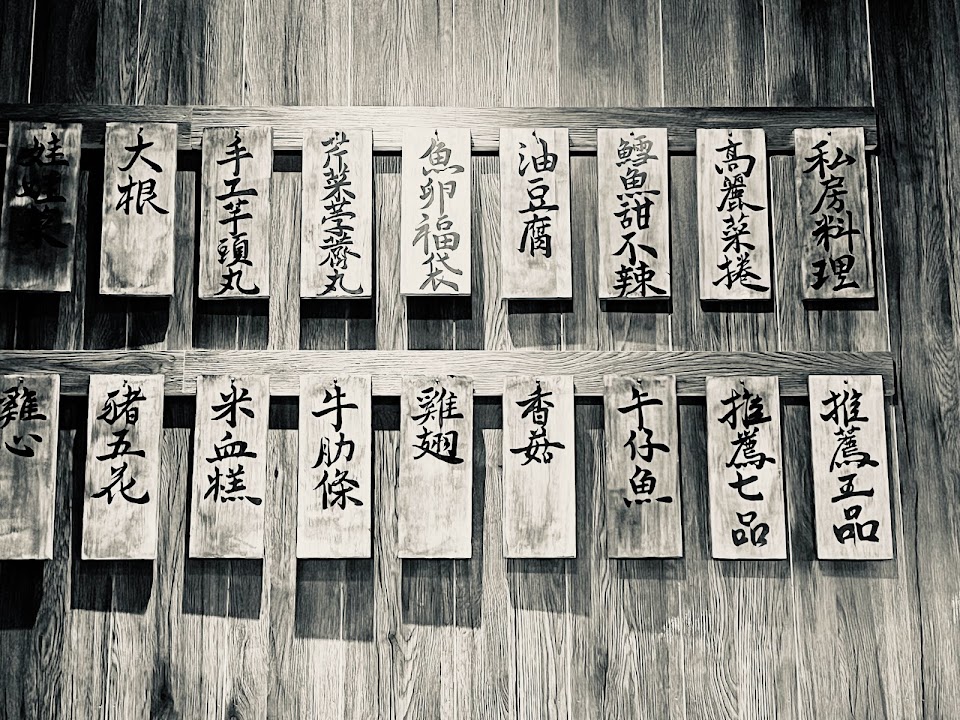 私房料理
高麗菜捲
鱈魚甜不辣
油豆腐
魚卵福袋
芹菜荸薺丸
手工芋頭丸
大根
娃娃菜
推薦五品
推薦七品
午仔魚
香菇
雞翅
牛肋條
米血糕
豬五花
雞心